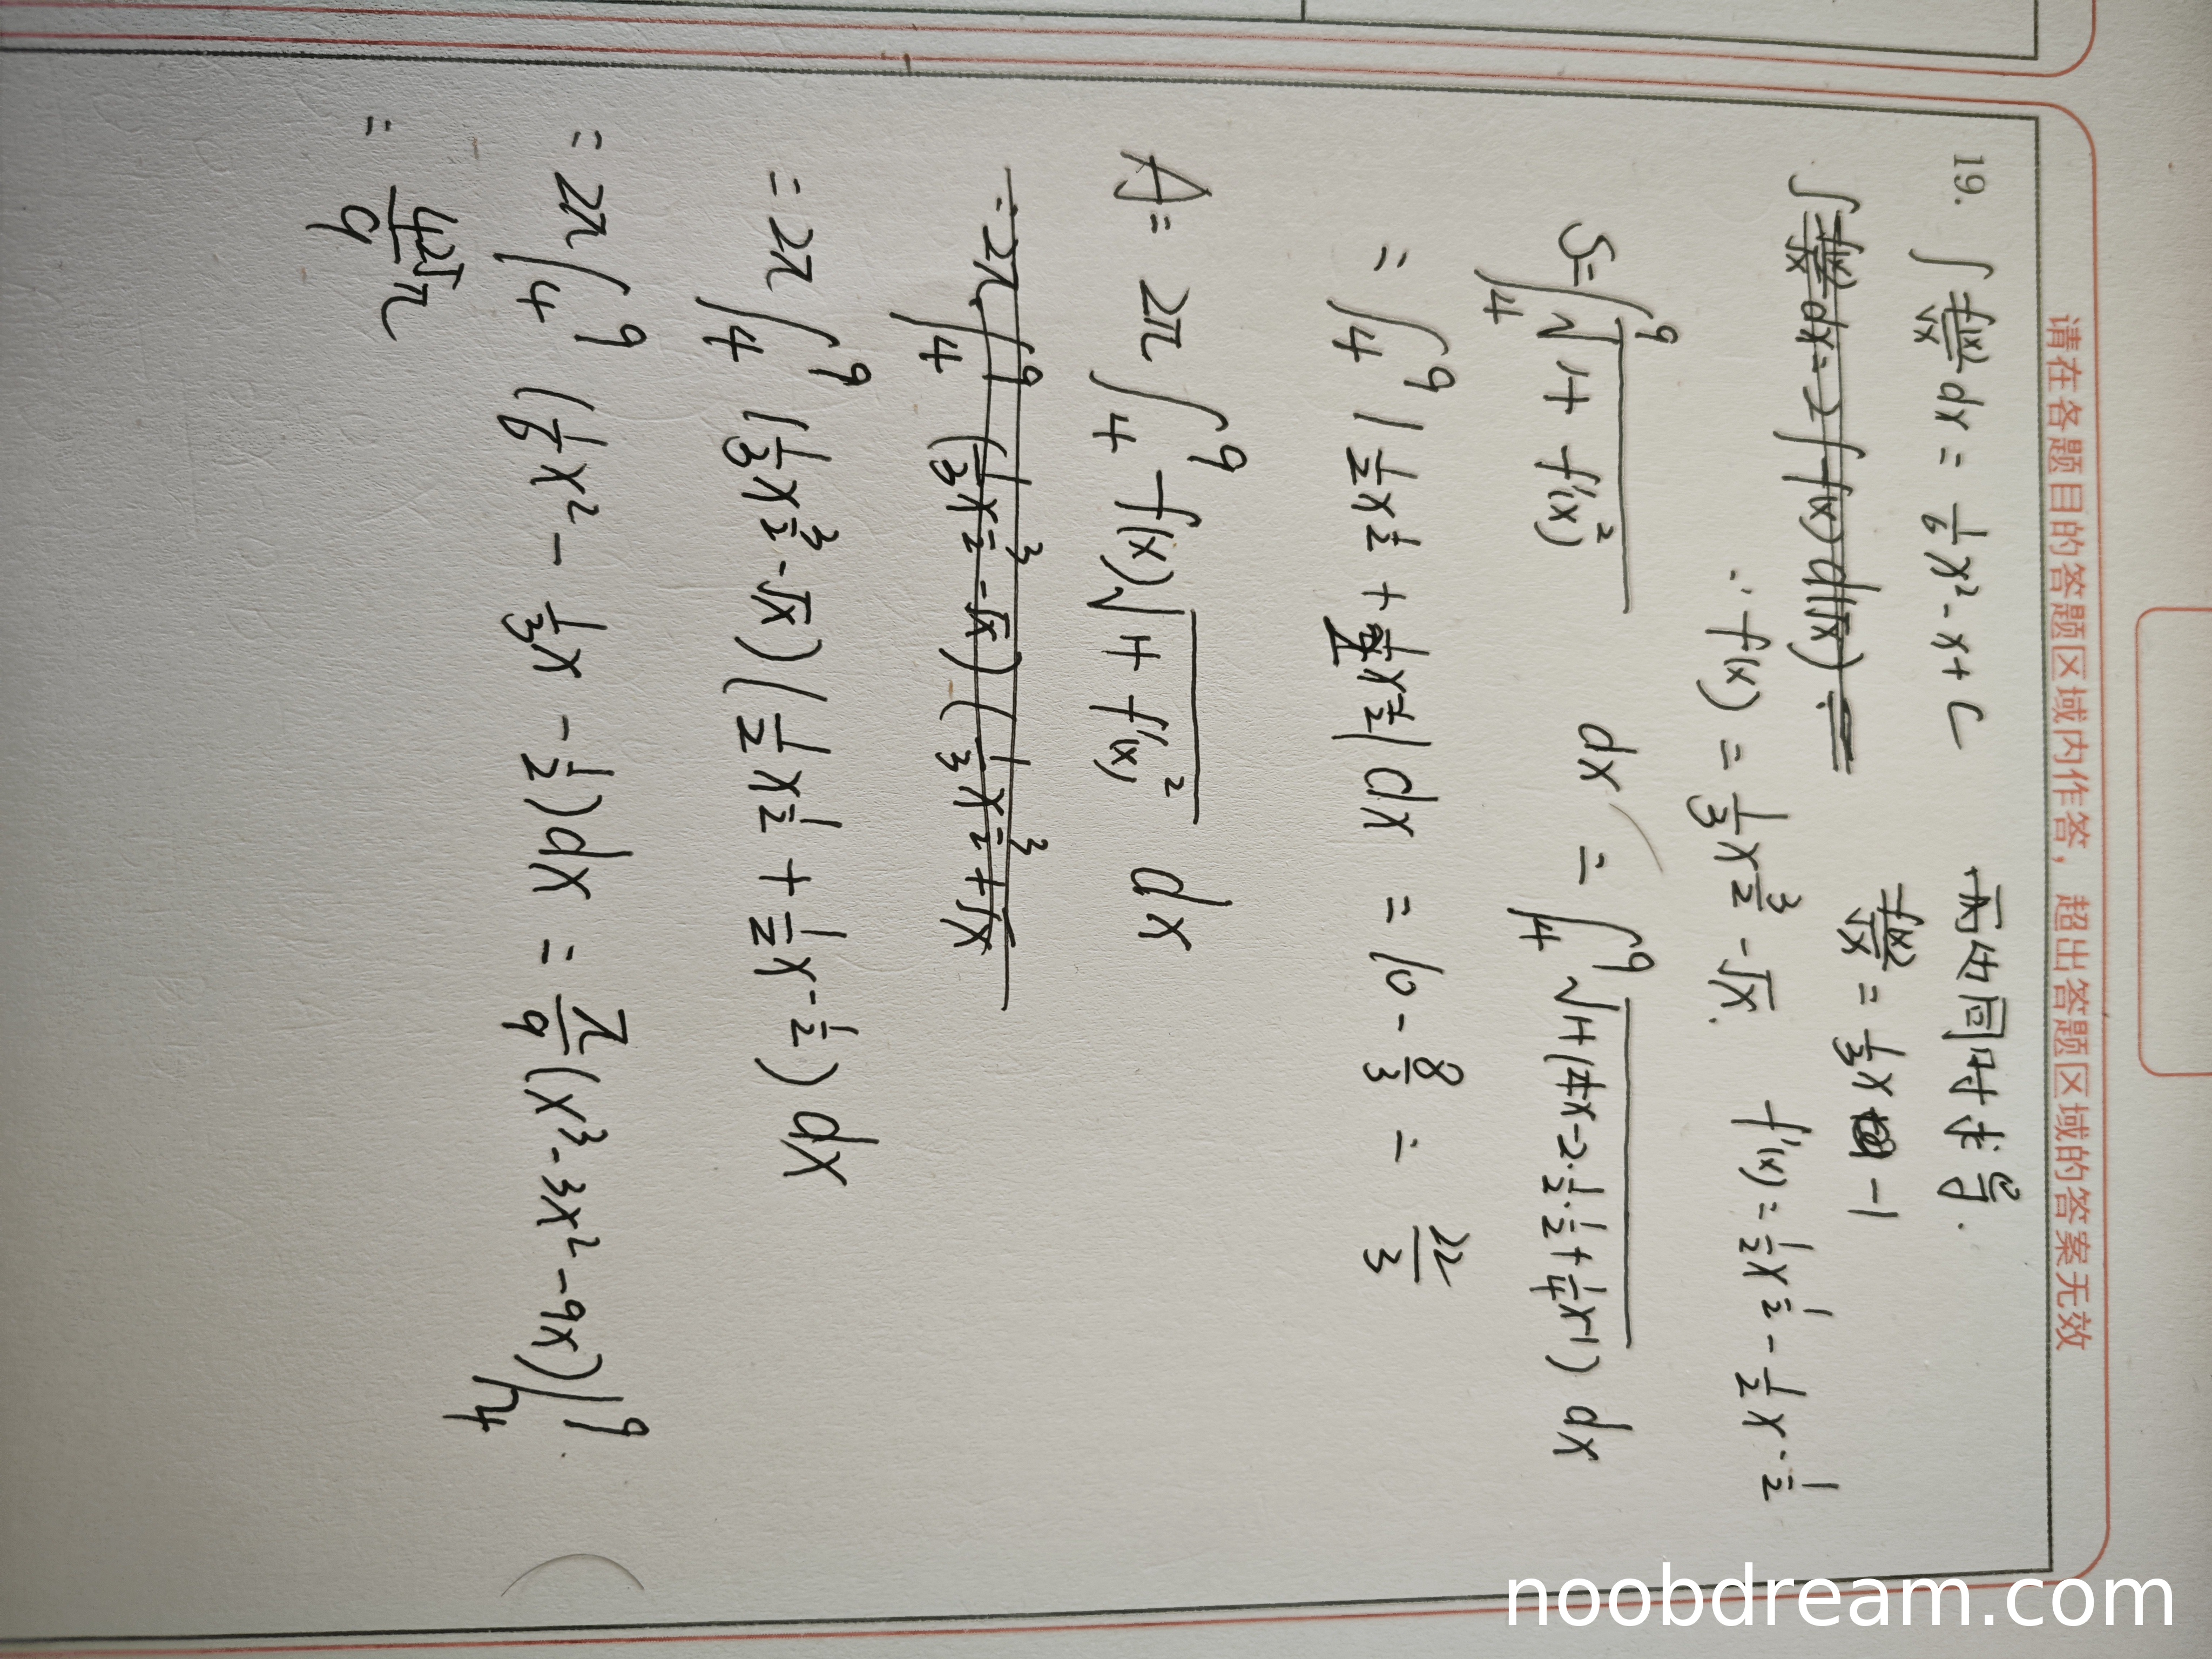 请在各题目的答题区域内作答，超出答题区域的答案无效
19. ∫ f(x)/√x dx = 1/6 x² - x + C 两边同时求导.
∫ f(x)/√x dx = 2∫ f(x) d(√x) =
f(x)/√x = 1/3 x - 1
∴ f(x) = 1/3 x^(3/2) - √x. f'(x) = 1/2 x^(1/2) - 1/2 x^(-1/2)
S = ∫₄⁹ √(1+f'(x)²) dx = ∫₄⁹ √(1+(1/4 x - 2·1/2·1/2 + 1/4 x⁻¹)) dx
= ∫₄⁹ |1/2 x^(1/2) + 1/2 x^(-1/2)| dx = 10 - 8/3 = 22/3
A = 2π ∫₄⁹ f(x)√(1+f'(x)²) dx
= 2π ∫₄⁹ (1/3 x^(3/2) - √x)(1/3 x^(3/2) + √x
= 2π ∫₄⁹ (1/3 x^(3/2) - √x)(1/2 x^(1/2) + 1/2 x^(-1/2)) dx
= 2π ∫₄⁹ (1/6 x² - 1/3 x - 1/2) dx = π/9 (x³ - 3x² - 9x)|₄⁹
= 425π/9
noobdream.com